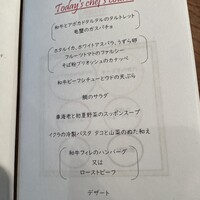 Today's chef's
和牛とアボカドタルタルのタルトレット
毛蟹のガスパチョ
ホタルイカ、ホワイトアスパラ、うずら卵
フルーツトマトのファルシー
そば粉ブリオッシュのカナッペ
和牛ビーフシチューとウドの天ぷら
鰹のサラダ
車海老と初夏野菜のスッポンスープ
イクラの冷製パスタ タコと山菜のぬた和え
和牛フィレのハンバーグ
又は
ローストビーフ
デザート